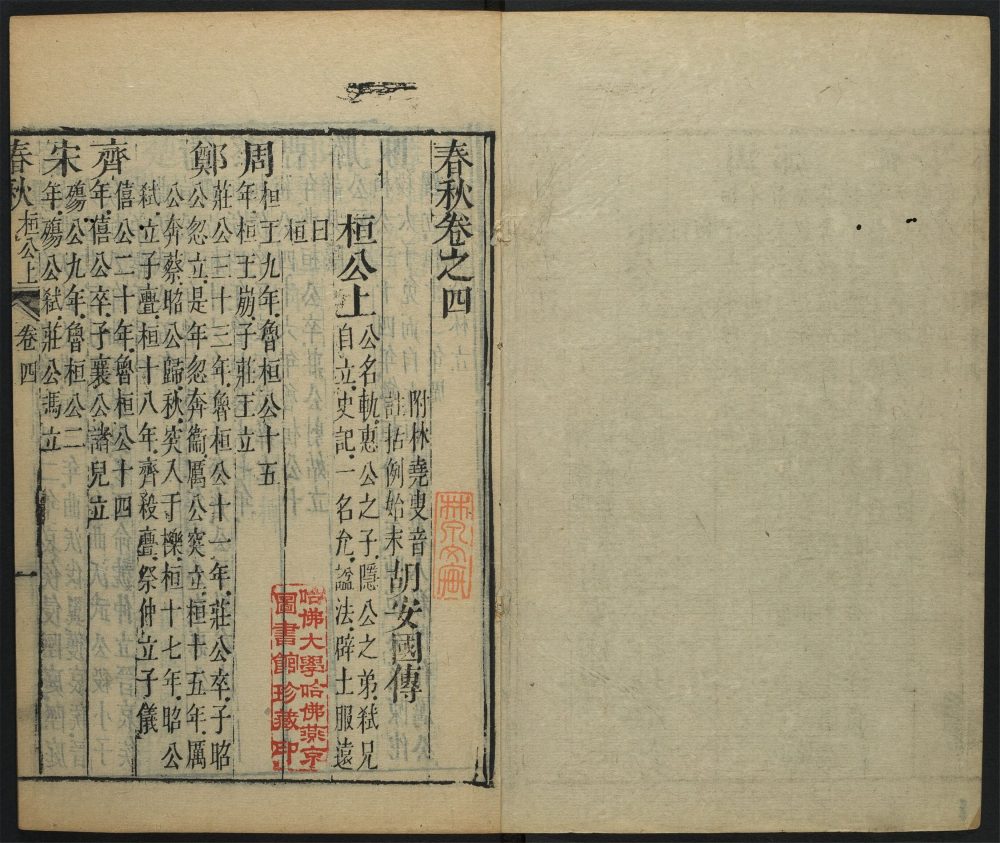 春秋卷之四
附林堯叟音
註括例始末
胡安國傳
桓公上
公名軌.惠公之子.隱公之弟.弑兄
自立.史記.一名允.諡法.辟土服遠
曰
桓
周
桓王九年.魯桓公十五
年.桓王崩.子莊王立
鄭
莊公三十三年.魯桓公十一年.莊公卒.子昭
公忽立.是年忽奔衞.厲公突立.桓十五年.厲
公奔蔡.昭公歸.秋.突入于櫟.桓十七年.昭公
弑.立子亹.桓十八年.齊殺亹.祭仲立子儀
齊
僖公二十年.魯桓公十四
年.僖公卒.子襄公諸兒立
宋
殤公九年.魯桓公二
年.殤公弑.莊公馮立
春秋
桓公上
卷四
一
哈佛大學哈佛燕京
圖書館珍藏印